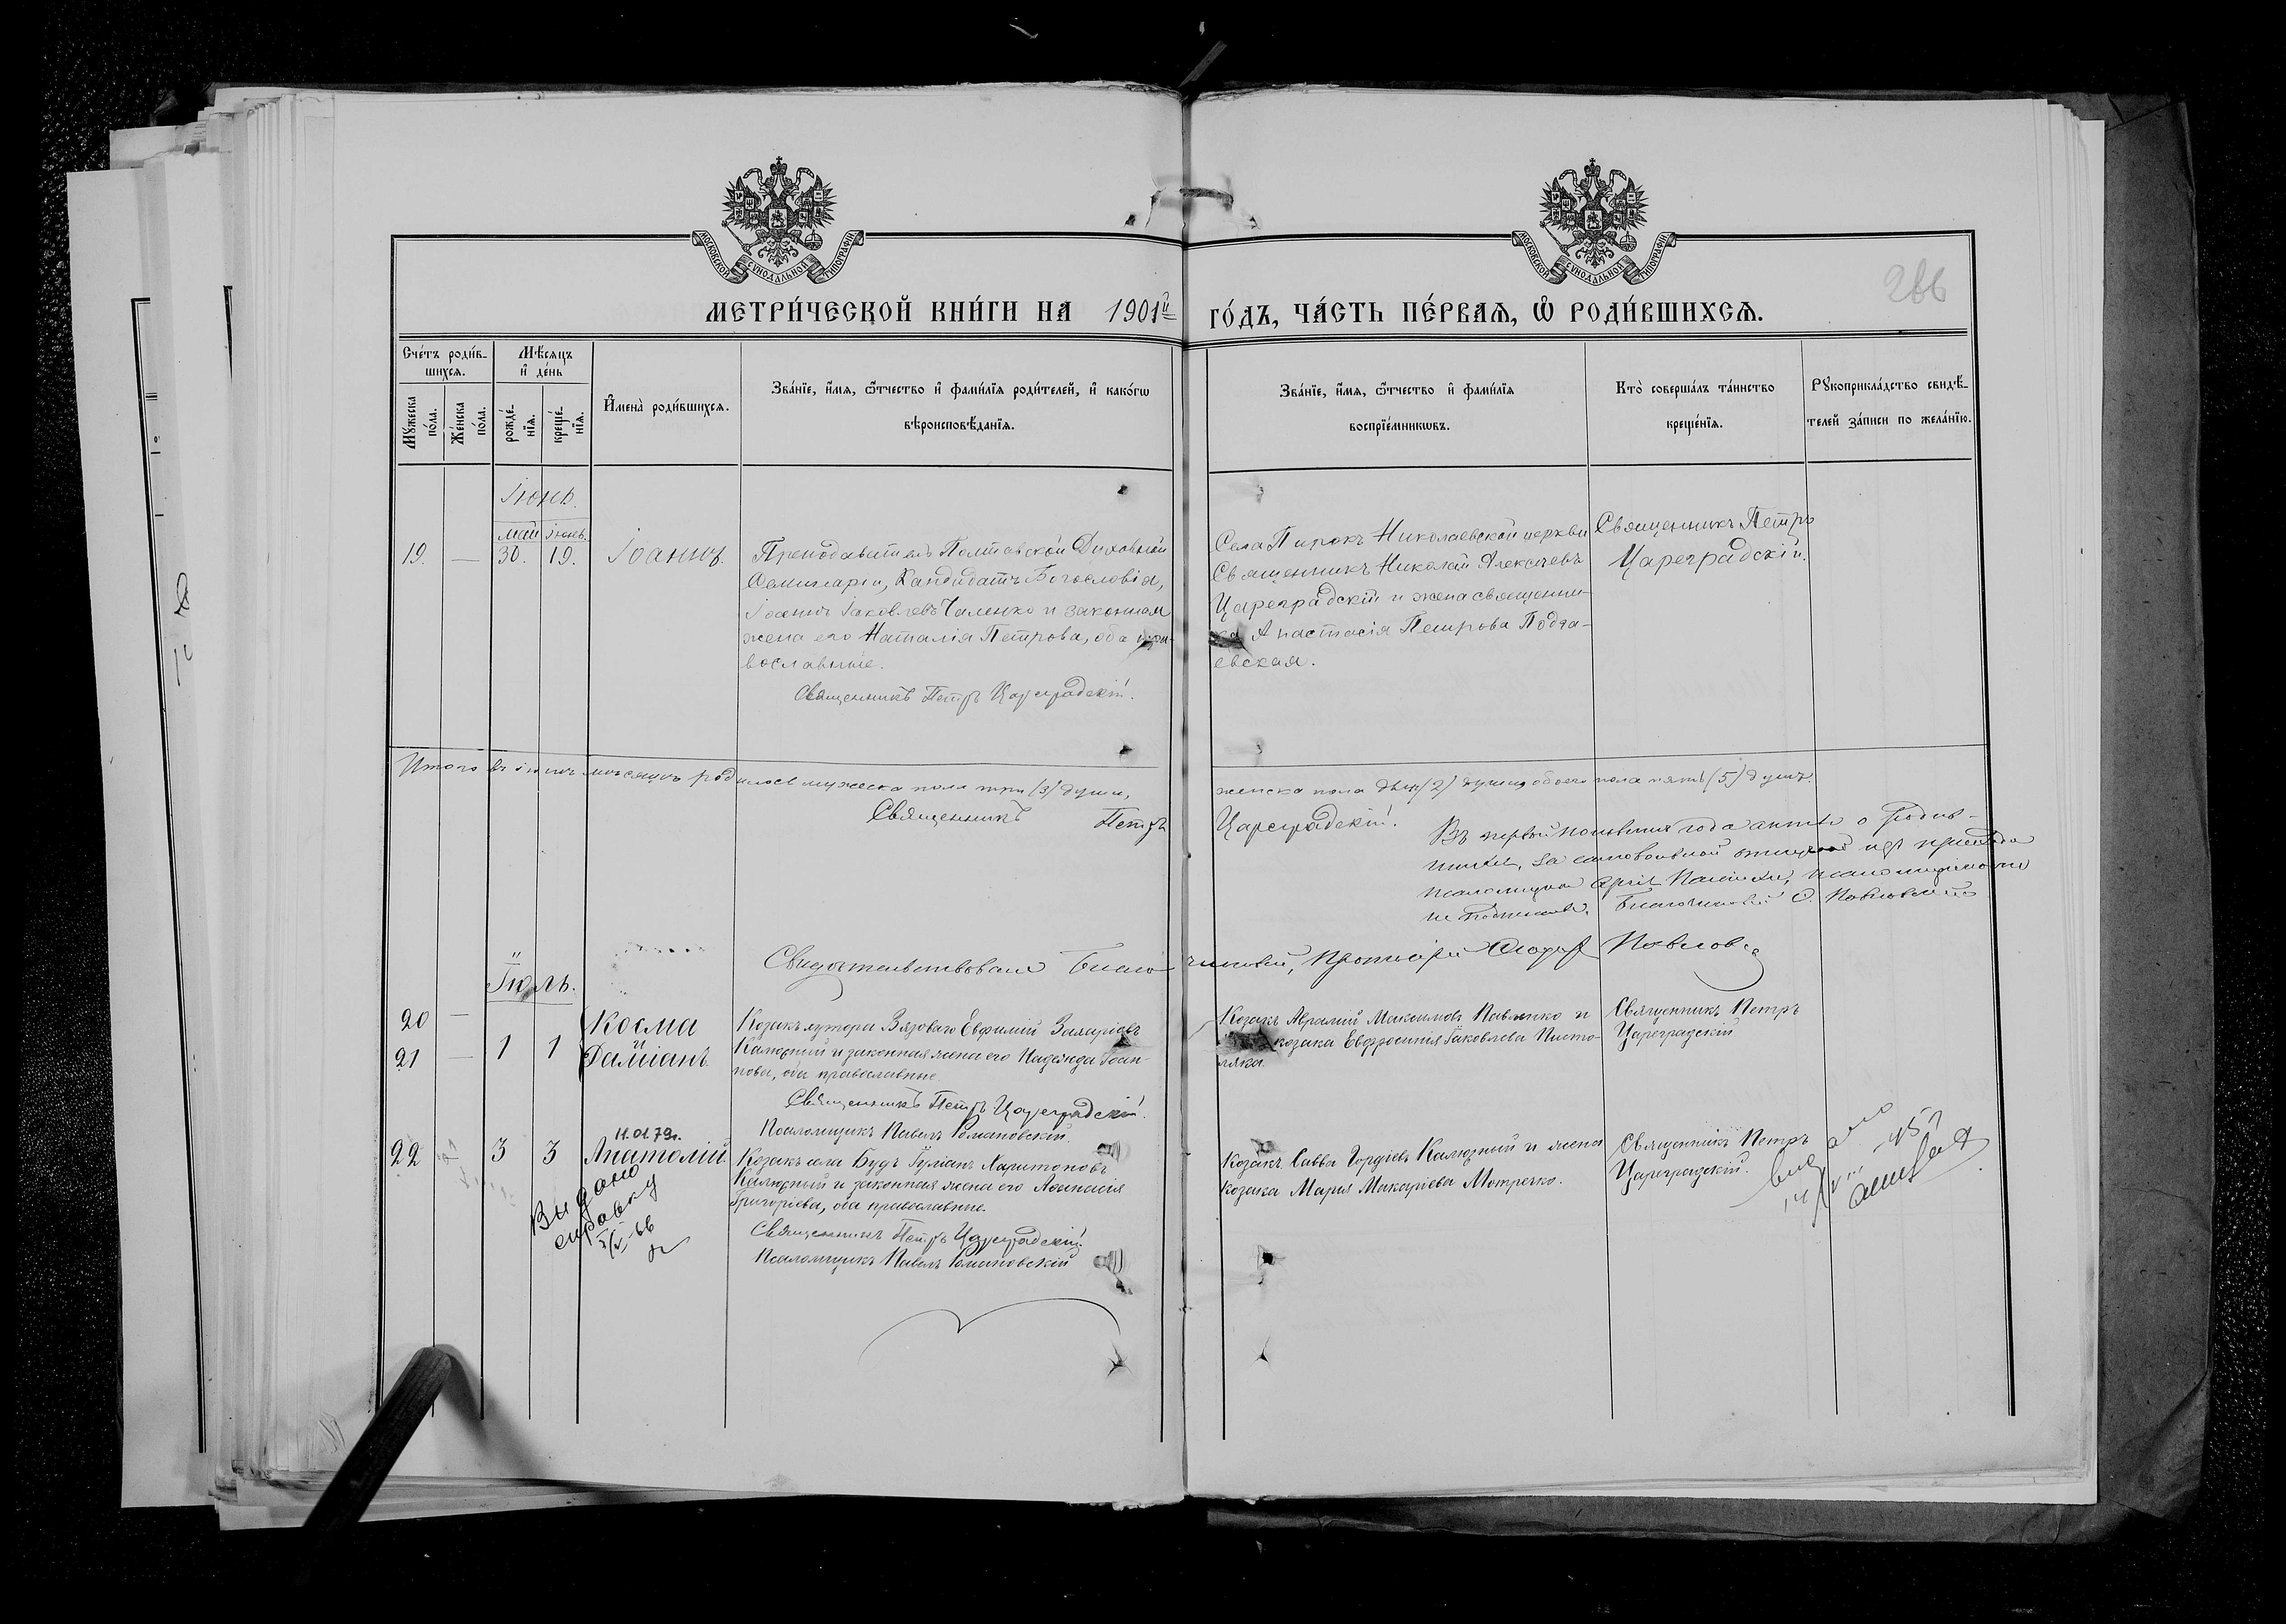 МОСКОВСКОЙ СѴНОДАЛЬНОЙ ТИПОГРАФІИ
МОСКОВСКОЙ СѴНОДАЛЬНОЙ ТИПОГРАФІИ
266
МЕТРИ́ЧЕСКОЙ КНИ́ГИ НА 1901й
ГО́ДЪ, ЧА́СТЬ ПЕ́РВАЯ, Ѡ҆ РОДИ́ВШИХСѦ.
Сче́тъ роди́в-
шихсѧ.
Мѣ́сѧцъ
и҆ де́нь
Мꙋ́жеска
по́ла.
Же́нска
по́ла.
рожде́-
нїѧ.
креще́-
нїѧ.
И҆мена̀ роди́вшихсѧ.
Зва́нїе, и҆́мѧ, ѻ҆́тчество и҆ фами́лїѧ роди́телей, и҆ како́гѡ
вѣроисповѣ́данїѧ.
Зва́нїе, и҆́мѧ, ѻ҆́тчество и҆ фами́лїѧ
воспрїе́мникѡвъ.
Кто̀ соверша́лъ та́инство
креще́нїѧ.
Рꙋкоприкла́дство свидѣ́-
телей за́писи по жела́нїю.
Іюнь.
май іюнь.
19. — 30. 19. Іоаннъ.
Преподаватель Полтавской Духовной
Семинаріи, Кандидатъ Богословія,
Іоаннъ Іаковлевъ Чаленко и законная
жена его Наталія Петрова, оба пра-
вославные.
Священникъ Петръ Цареградскій.
Села Пирокъ Николаевской церкви
Священникъ Николай Алексѣевъ
Цареградскій и жена священни-
ка Анастасія Петрова Подга-
евская.
Священникъ Петръ
Цареградскій.
Итого въ іюнѣ мѣсяцѣ родилось мужеска пола три (3) души,
женска пола двѣ (2) души, обоего пола пять (5) душъ.
Священникъ Петръ
Цареградскій.
Въ первой половинѣ года акты о родив-
шихся, за самовольной отлучкой изъ прихода
псаломщика
не подписаны. Благочинный С. Павловскій
Свидѣтельствовалъ Благочинный, Протоіерей Павловскій
Іюль.
20 —
21 —
1 1
Косма
Даміанъ.
Козакъ хутора Вязоваго Евфимій Захаріевъ
Калюжный и законная жена его Надежда Іоан-
нова, оба православные.
Священникъ Петръ Цареградскій.
Псаломщикъ Павелъ Романовскій.
Козакъ Аврамій Максимовъ Павленко и
козака Евфросинія Іаковлева Писто-
ляка.
Священникъ Петръ
Цареградскій
11.01.79г.
22 3 3 Анатолій.
Козакъ села Будъ Іуліанъ Харитоновъ
Калюжный и законная жена его Аѳанасія
Григоріева, оба православные.
Священникъ Петръ Цареградскій.
Псаломщикъ Павелъ Романовскій
Козакъ Савва Гордіевъ Калюжный и жена
козака Марія Макаріева Мотречко.
Священникъ Петръ
Цареградскій.
Выдано
справку